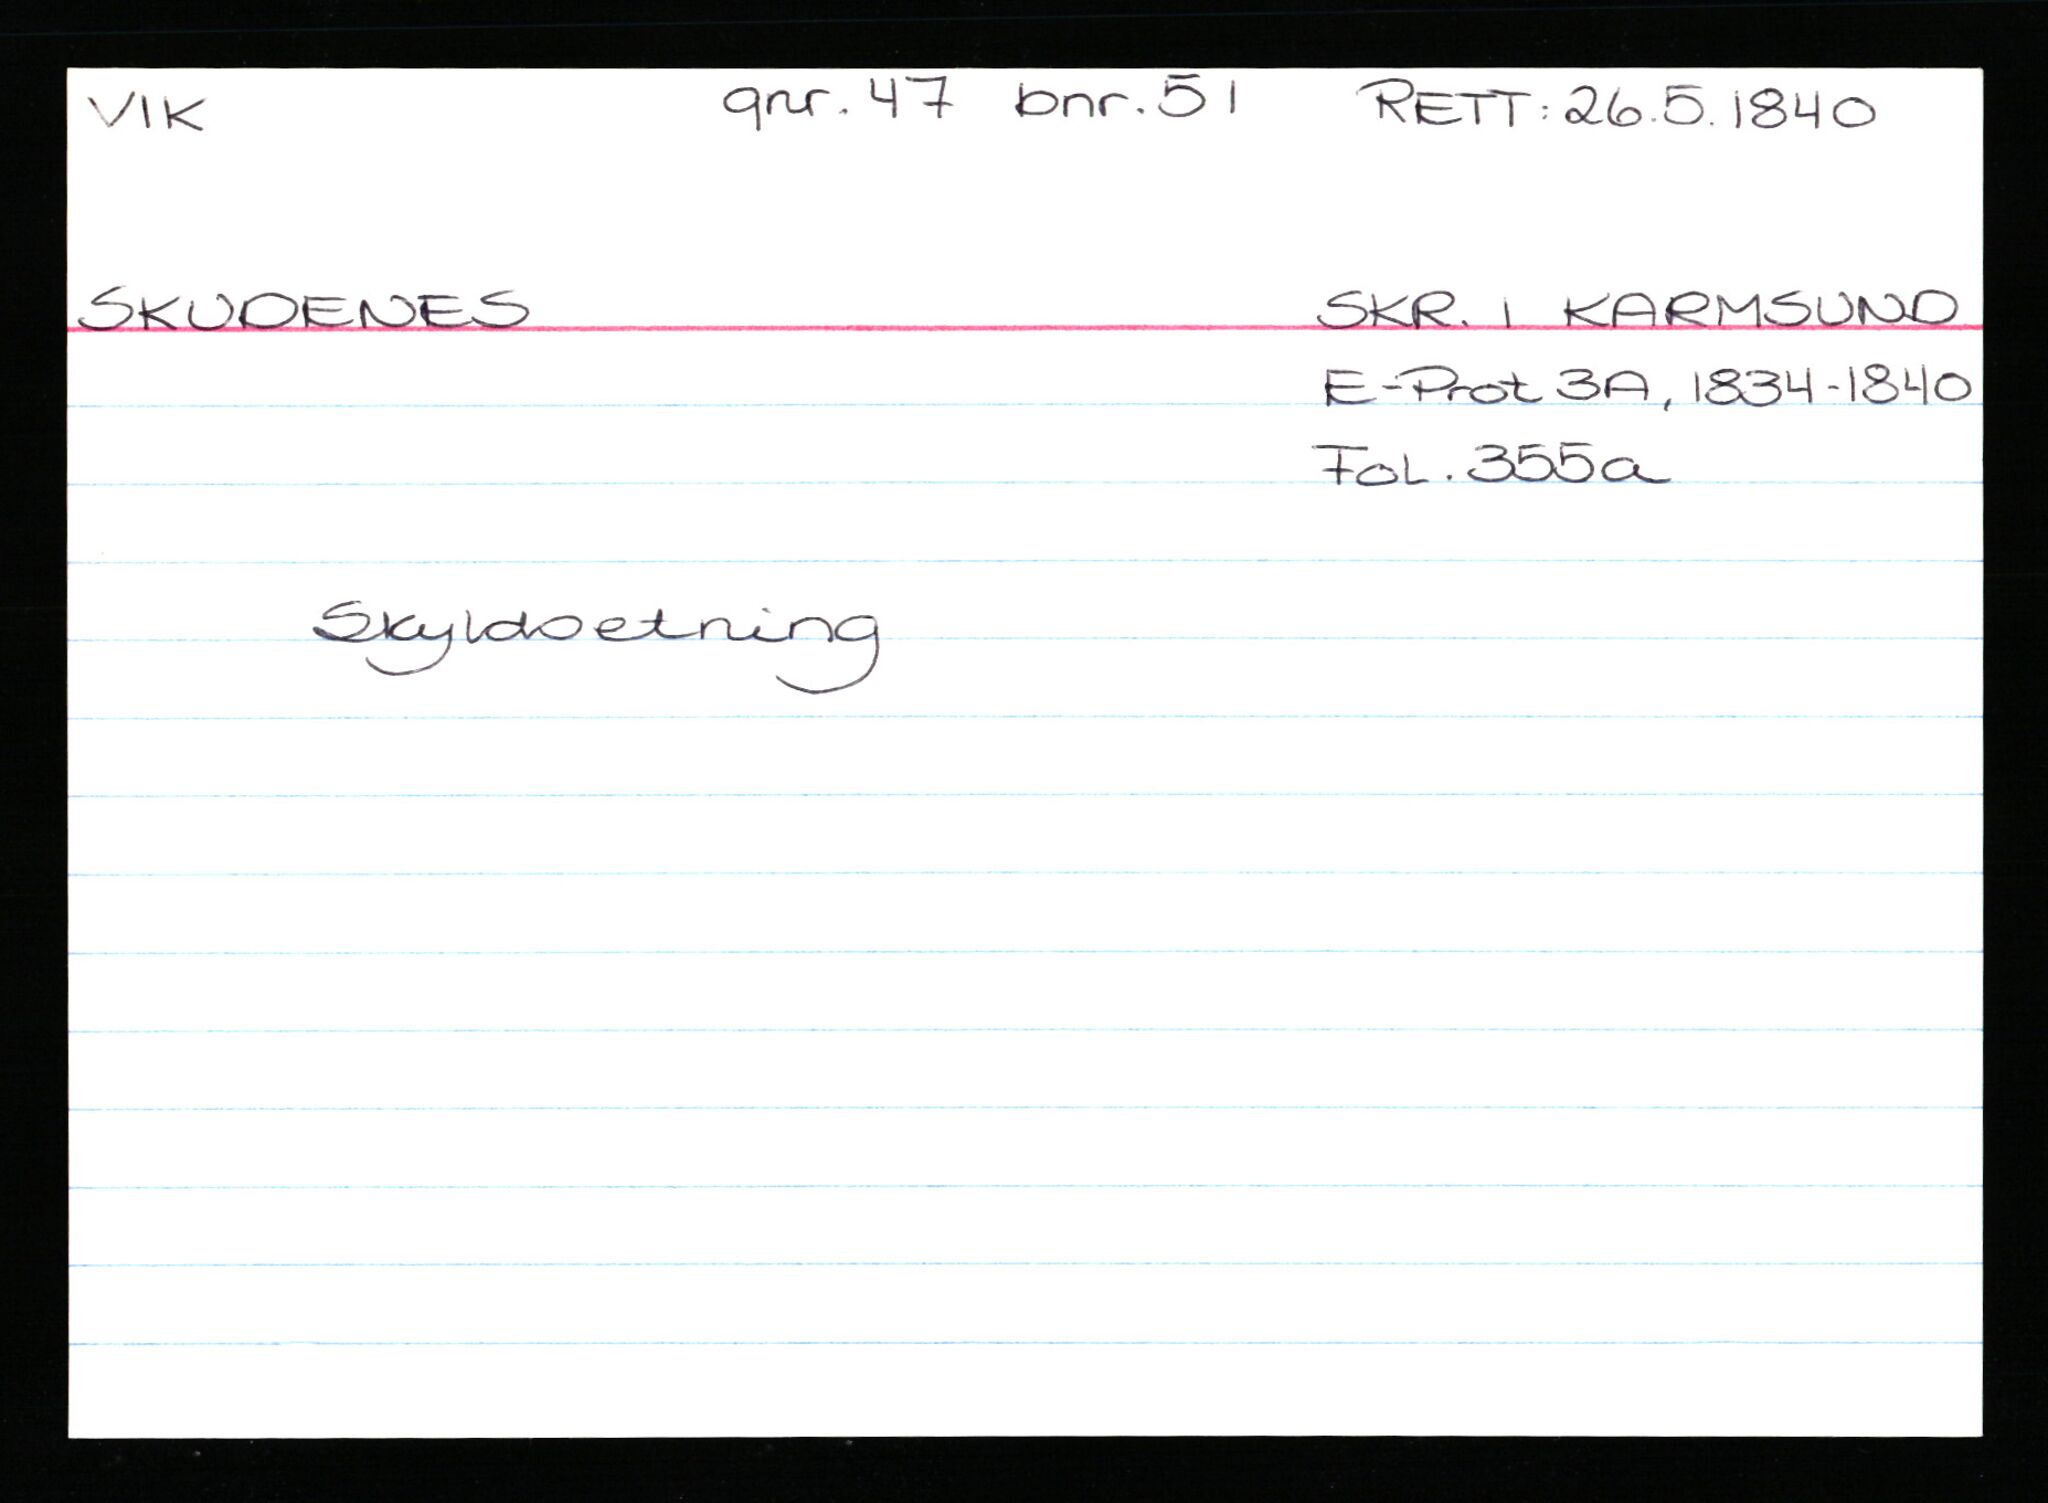 VIK gnr. 47 bnr. 51 RETT: 26.5.1840
SKUDENES SKR. I KARMSUND
E-Prot 3A, 1834-1840
Fol. 355a
Skyldsetning